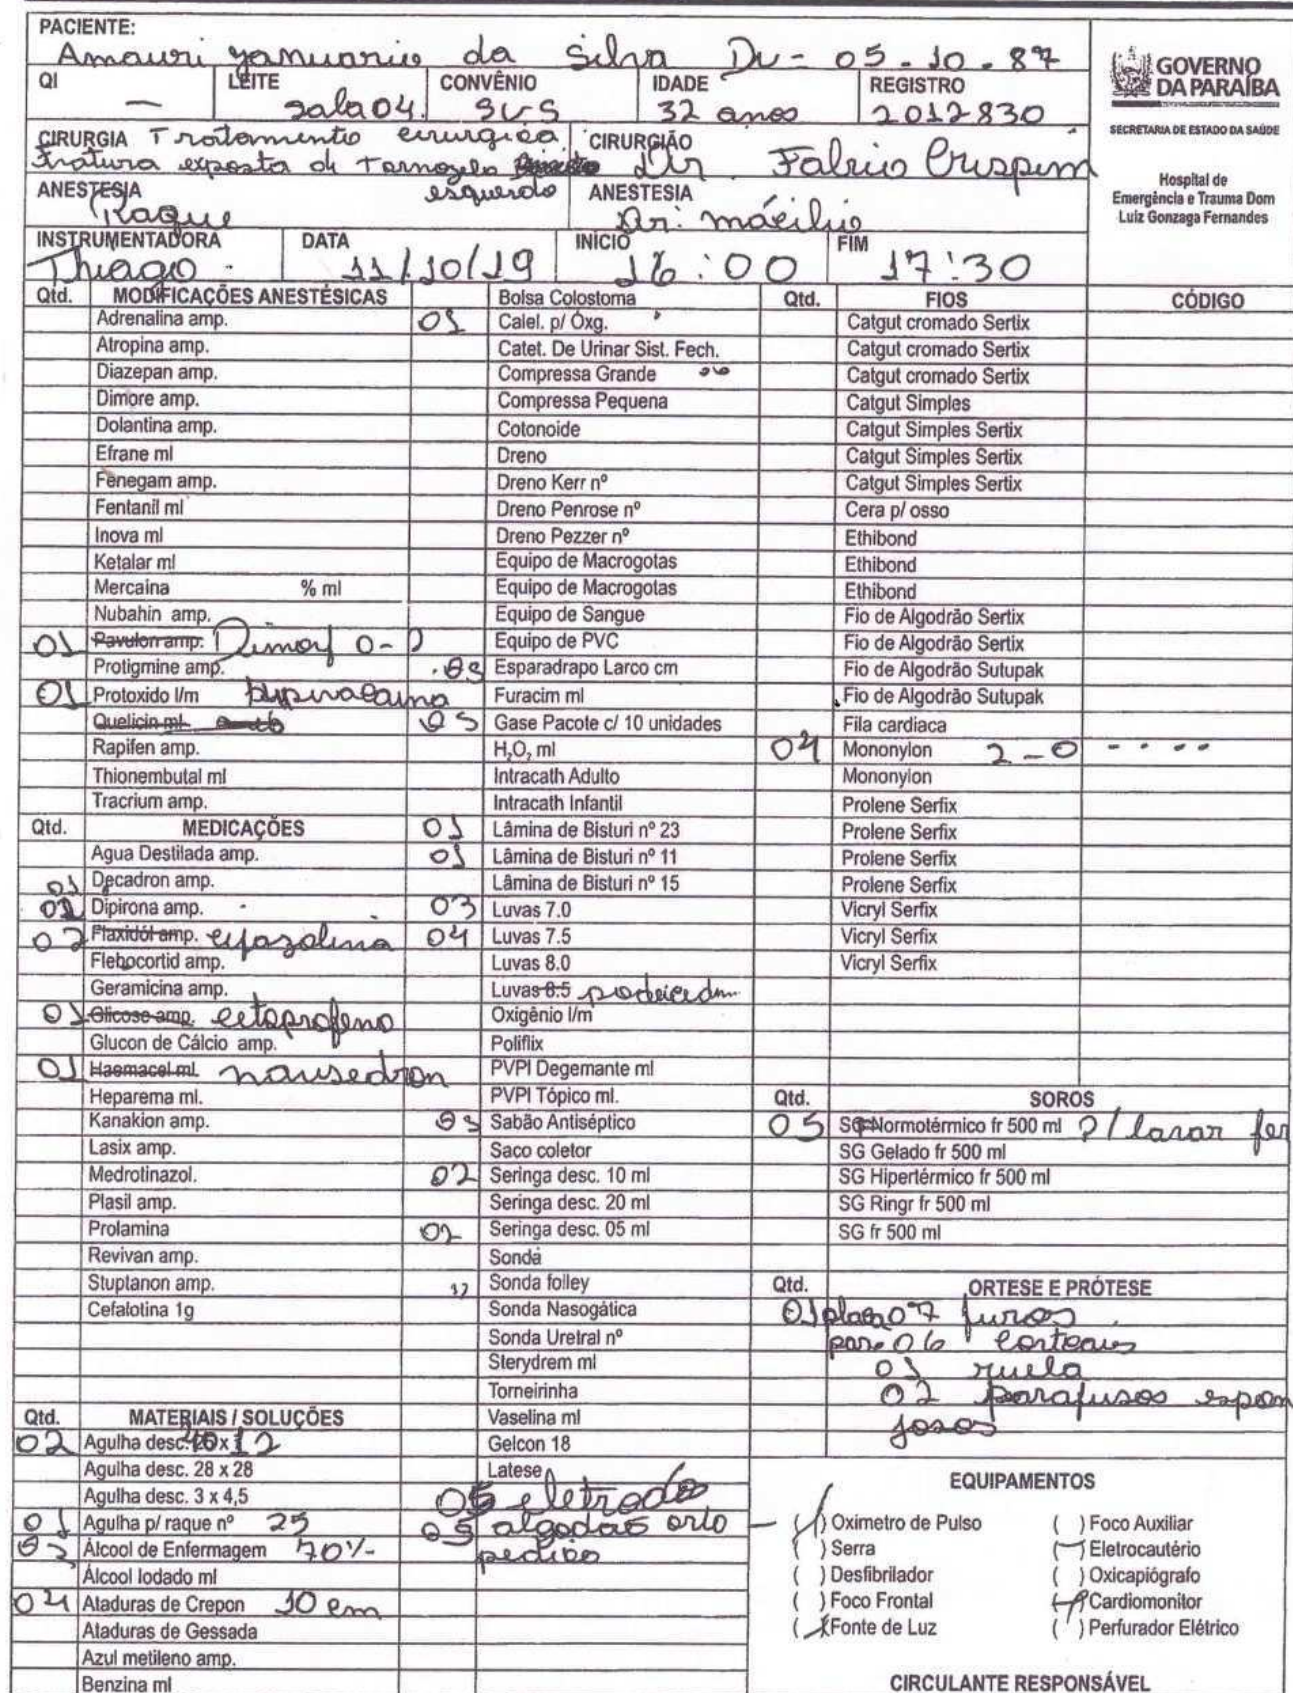 PACIENTE:
Amauri Januario da Silva Dn - 05.10.87
GOVERNO DA PARAÍBA
SECRETARIA DE ESTADO DA SAÚDE
Hospital de Emergência e Trauma Dom Luiz Gonzaga Fernandes
QI — LEITE sala 04. CONVÊNIO SUS IDADE 32 anos REGISTRO 2012830
CIRURGIA Tratamento cirurgico fratura exposta de Tornozelo esquerdo
CIRURGIÃO Dr. Fabricio Crispim
ANESTESIA Raque
ANESTESIA Dr. Marcilio
INSTRUMENTADORA Thiago DATA 11/10/19 INÍCIO 16:00 FIM 17:30
Qtd. MODIFICAÇÕES ANESTÉSICAS
Adrenalina amp.
Atropina amp.
Diazepan amp.
Dimore amp.
Dolantina amp.
Efrane ml
Fenegam amp.
Fentanil ml
Inova ml
Ketalar ml
Mercaina % ml
Nubahin amp.
01 Pavulon amp. Dimorf 0-2
Protigmine amp.
01 Protoxido l/m bupivacaina
Quelicin ml
Rapifen amp.
Thionembutal ml
Tracrium amp.
Qtd. MEDICAÇÕES
Agua Destilada amp.
01 Decadron amp.
02 Dipirona amp.
02 Flaxidól amp. cefazolina
Flebocortid amp.
Geramicina amp.
01 Glicose amp. cetoprofeno
Glucon de Cálcio amp.
01 Haemacel ml. nausedron
Heparema ml.
Kanakion amp.
Lasix amp.
Medrotinazol.
Plasil amp.
Prolamina
Revivan amp.
Stuptanon amp.
Cefalotina 1g
Qtd. MATERIAIS / SOLUÇÕES
02 Agulha desc. 40 x 12
Agulha desc. 28 x 28
Agulha desc. 3 x 4,5
01 Agulha p/ raque nº 25
Álcool de Enfermagem 70%
Álcool Iodado ml
04 Ataduras de Crepon 10 cm
Ataduras de Gessada
Azul metileno amp.
Benzina ml
Bolsa Colostoma
01 Calel. p/ Óxg.
Catet. De Urinar Sist. Fech.
Compressa Grande
Compressa Pequena
Cotonoide
Dreno
Dreno Kerr nº
Dreno Penrose nº
Dreno Pezzer nº
Equipo de Macrogotas
Equipo de Macrogotas
Equipo de Sangue
Equipo de PVC
Esparadrapo Larco cm
Furacim ml
05 Gase Pacote c/ 10 unidades
H2O2 ml
Intracath Adulto
Intracath Infantil
01 Lâmina de Bisturi nº 23
01 Lâmina de Bisturi nº 11
Lâmina de Bisturi nº 15
03 Luvas 7.0
04 Luvas 7.5
Luvas 8.0
Luvas 8.5
Oxigênio l/m
Poliflix
PVPI Degemante ml
PVPI Tópico ml.
Sabão Antiséptico
Saco coletor
02 Seringa desc. 10 ml
Seringa desc. 20 ml
02 Seringa desc. 05 ml
Sonda
Sonda folley
Sonda Nasogática
Sonda Uretral nº
Sterydrem ml
Torneirinha
Vaselina ml
Gelcon 18
Latese
05 eletrodo
05 algodao orto
pedico
Qtd. FIOS CÓDIGO
Catgut cromado Sertix
Catgut cromado Sertix
Catgut cromado Sertix
Catgut Simples
Catgut Simples Sertix
Catgut Simples Sertix
Catgut Simples Sertix
Cera p/ osso
Ethibond
Ethibond
Ethibond
Fio de Algodrão Sertix
Fio de Algodrão Sertix
Fio de Algodrão Sutupak
Fio de Algodrão Sutupak
Fila cardiaca
04 Mononylon 2-0 - - - -
Mononyion
Prolene Serfix
Prolene Serfix
Prolene Serfix
Prolene Serfix
Vicryl Serfix
Vicryl Serfix
Vicryl Serfix
Qtd. SOROS
05 Normotérmico fr 500 ml P/ lavar fer
SG Gelado fr 500 ml
SG Hipertérmico fr 500 ml
SG Ringr fr 500 ml
SG fr 500 ml
Qtd. ORTESE E PRÓTESE
01 placa 07 furos
par. 06 corticais
01 ruela
02 parafusos espon
josos
EQUIPAMENTOS
(/) Oximetro de Pulso ( ) Foco Auxiliar
( ) Serra (/) Eletrocautério
( ) Desfibrilador ( ) Oxicapiógrafo
( ) Foco Frontal (/) Cardiomonitor
(x) Fonte de Luz ( ) Perfurador Elétrico
CIRCULANTE RESPONSÁVEL